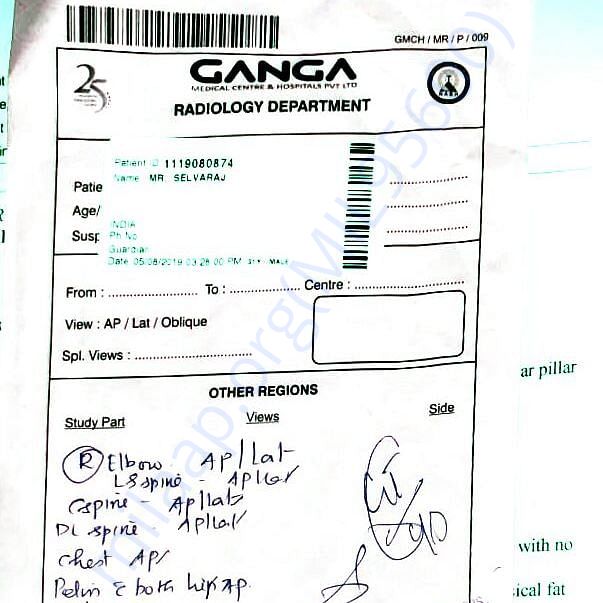 GMCH / MR / P / 009
25
GANGA
MEDICAL CENTRE & HOSPITALS PVT LTD
RADIOLOGY DEPARTMENT
Patient ID 1119080874
Name MR. SELVARAJ
Patie
Age/
INDIA
Susp Ph No
Guardian
Date 05/08/2019 03:28:00 PM MALE
From : To : Centre :
View : AP / Lat / Oblique
Spl. Views :
OTHER REGIONS
Study Part Views Side
R Elbow AP/Lat
LS spine - AP/Lat
Cspine - AP/Lat
DL spine - AP/Lat
Chest AP/
Pelvis & both hip AP.
ar pillar
with no
ical fat